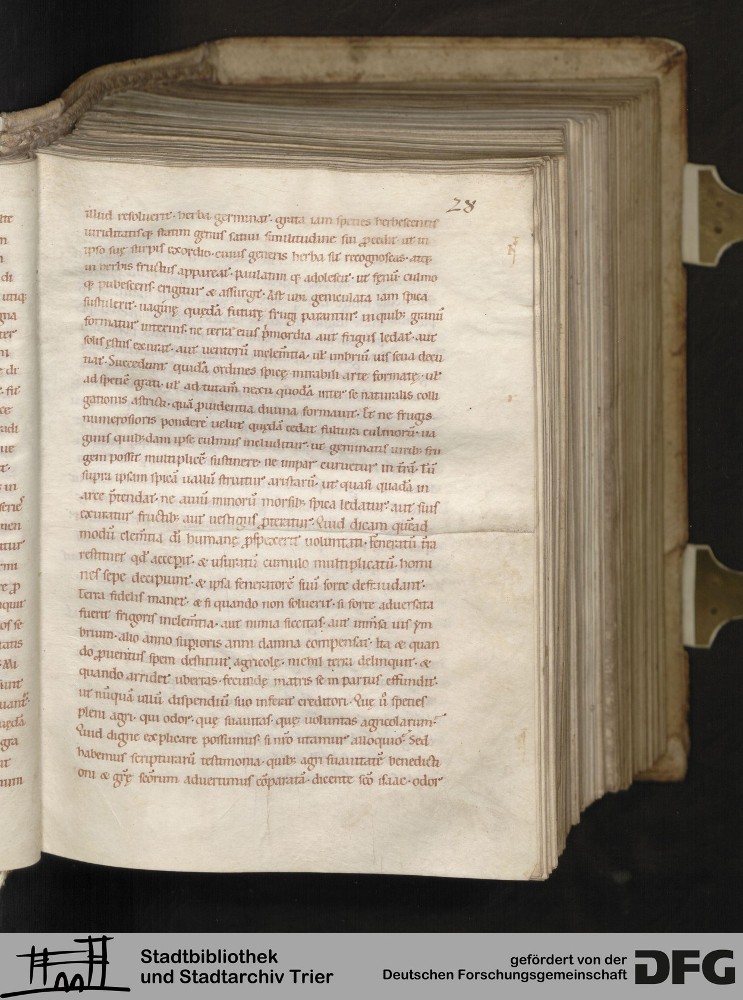 28
illud resoluerit· herba germinat· grata iam species herbescentis
uiriditatis q; statim genus satiui similitudine sui p̄cedit· ut in
ipso suę stirpis exordio· cuius generis herba sit recognoscas· atq;
in herbis fructus appareat· paulatim q; adolescit· ut fęnū culmo
q; pubescens erigitur & assurgit· Ast ubi geniculata iam spica
sustulerit· uaginę quędā futurę frugi parantur in quib; granū
formatur interius· ne tenera eius p̄mordia aut frigus ledat· aut
solis ęstus exurat· aut uentorū inclem̄tia· ut imbriū uis seua decu
tiat· Succedunt quidā ordines spicę mirabili arte formatę· ut
ad speciē grati· ut ad tutam̄ nexu quodā inter se naturalis colli
gationis astricti· quā p̄uidentia diuina formauit· Et ne frugis
numerosioris pondere uelut quędā cedat fultura culmorū· ua
ginis quib;dam ipse culmus includitur· ut geminatis uirib; fru
gem possit multiplicē sustinere· ne impar curuetur in trā· Tū
supra ipsam spicā uallū struitur aristarū· ut quasi quadā in
arce p̄tendat· ne auiū minorū morsib; spica ledatur· aut suis
exuratur fructib; aut uestigiis p̄teratur· Quid dicam quēad
modū clem̄tia dī humanę p̄spexerit uoluntati· Feneratū trā
restituit qd̄ accepit· & usurarū cumulo multiplicatū· homi
nes sepe decipiunt· & ipsa feneratorē suū sorte defraudant·
Terra fidelis manet· & si quando non soluerit· si forte aduersata
fuerit frigoris inclem̄tia· aut nimia siccitas· aut imm̄sa uis ym
brium· alio anno sup̄ioris anni damna compensat· Ita & quan
do p̄uentus spem destituit agricolę· nichil terra delinquit· &
quando arridet ubertas· fecundę matris se in partus effundit·
ut nūquā ullū dispendiū suo inferat creditori· Quę ū species
pleni agri· qui odor· quę suauitas· quę uoluntas agricolarum·
Quid digne explicare possumus· si nrō utamur alloquio· Sed
habemus scripturarū testimonia· quib; agri suauitatē benedicti
oni & grę scōrum aduertimus cōparatā· dicente scō isaac· odor
Stadtbibliothek
und Stadtarchiv Trier
gefördert von der
Deutschen Forschungsgemeinschaft
DFG